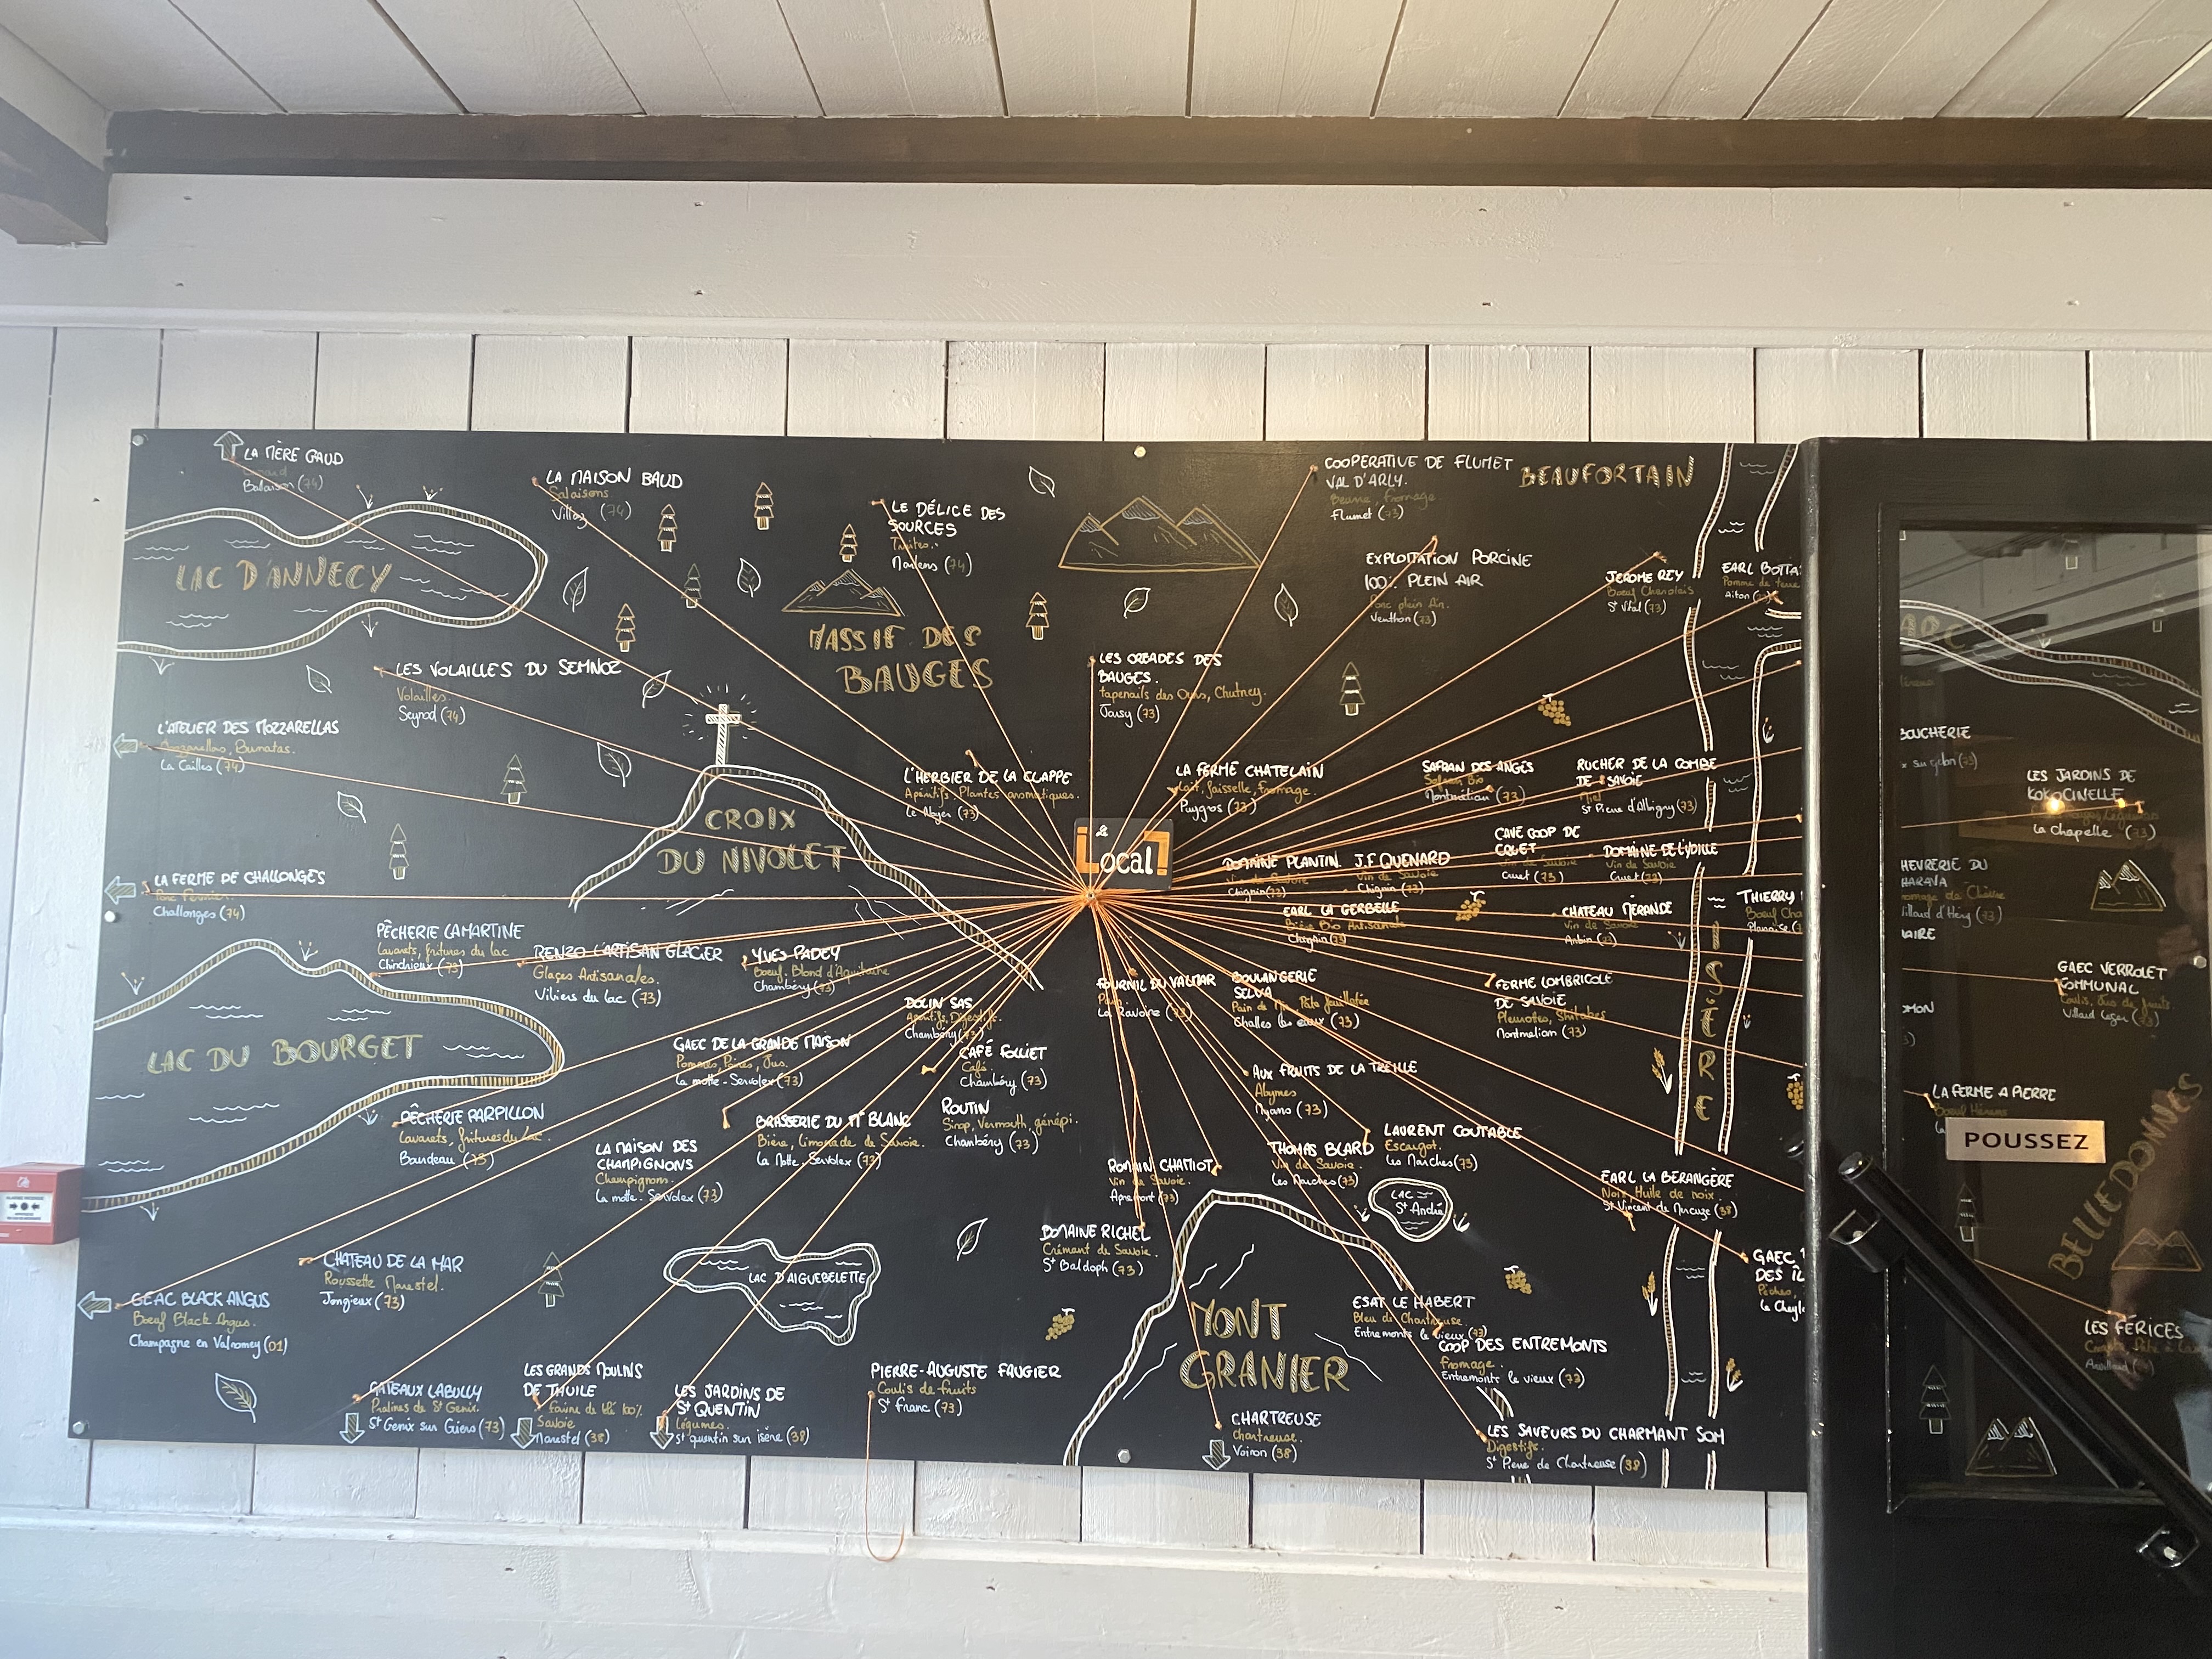 LA MÈRE GAUD
Balaison (74)
LAC D'ANNECY
LA MAISON BAUD
Salaisons.
Villaz (74)
LE DÉLICE DES
SOURCES
Truites.
Marlens (74)
MASSIF DES
BAUGES
COOPERATIVE DE FLUMET
VAL D'ARLY.
Beurre, fromage.
Flumet (73)
BEAUFORTAIN
EXPLOITATION PORCINE
100% PLEIN AIR
Porc plein Air.
Venthon (73)
JEROME REY
Boeuf Charolais
St Vital (73)
EARL BOTTA
Pomme de terre
Aiton
LES VOLAILLES DU SEMNOZ
Volailles.
Seynod (74)
L'ATELIER DES MOZZARELLAS
Mozzarellas, Burratas.
La Cailles (74)
LES ORBADES DES
BAUGES.
Tapenails des Ours, Chutney.
Jarsy (73)
L'HERBIER DE LA CLAPPE
Apéritifs, Plantes aromatiques.
Le Noyer (73)
LA FERME CHATELAIN
Lait, faisselle, fromage.
Puygros (73)
SAFRAN DES ANGES
Safran Bio
Montmélian (73)
RUCHER DE LA COMBE
DE SAVOIE
Miel
St Pierre d'Albigny (73)
CROIX
DU NIVOLET
Le
Local
LA FERME DE CHALLONGES
Porc Fermier.
Challonges (74)
DOMAINE PLANTIN
Vin de Savoie
Chignin (73)
J.F QUENARD
Vin de Savoie
Chignin (73)
CAVE COOP DE
CRUET
Vin de Savoie
Cruet (73)
DOMAINE DE L'IDYLLE
Vin de Savoie
Cruet (73)
EARL LA GERBELLE
Bière Bio Artisanale
Chignin (73)
CHATEAU MÉRANDE
Vin de Savoie
Arbin (73)
THIERRY
Boeuf Cha
Planaise (7
PÊCHERIE LAMARTINE
Lavarets, fritures du lac
Chindrieux (73)
RENZO L'ARTISAN GLACIER
Glaces Artisanales.
Viviers du lac (73)
YVES PADEY
Boeuf Blond d'Aquitaine
Chambéry (73)
LAC DU BOURGET
DOLIN SAS
Apéritifs, Digestifs.
Chambéry (73)
FOURNIL DU VALMAR
Pain.
La Ravoire (73)
BOULANGERIE
SELVA
Pain de Mie, Pâte feuilletée
Challes les eaux (73)
FERME LOMBRICOLE
DE SAVOIE
Pleurotes, Shitakes
Montmelian (73)
ISÈRE
GAEC DE LA GRANDE MAISON
Pommes, Poires, Jus.
La motte-Servolex (73)
CAFÉ FOLLIET
Café.
Chambéry (73)
AUX FRUITS DE LA TREILLE
Abymes
Myans (73)
PÊCHERIE PARPILLON
Lavarets, fritures du lac.
Bourdeau (73)
BRASSERIE DU MT BLANC
Bière, limonade de Savoie.
La Motte-Servolex (73)
ROUTIN
Sirop, Vermouth, génépi.
Chambéry (73)
LA MAISON DES
CHAMPIGNONS
Champignons.
La motte-Servolex (73)
ROMAIN CHAMIOT
Vin de Savoie.
Apremont (73)
THOMAS BLARD
Vin de Savoie.
Les Marches (73)
LAURENT COUTABLE
Escargot.
Les Marches (73)
LAC
St André
EARL LA BÉRANGÈRE
Noix, Huile de noix.
St Vincent de Mercuze (38)
DOMAINE RICHEL
Crémant de Savoie.
St Baldoph (73)
CHATEAU DE LA MAR
Roussette Marestel.
Jongieux (73)
LAC D'AIGUEBELETTE
GEAC BLACK ANGUS
Boeuf Black Angus.
Champagne en Valromey (01)
MONT
GRANIER
ESAT LE HABERT
Bleu de Chartreuse.
Entremonts le vieux (73)
COOP DES ENTREMONTS
Fromage.
Entremonts le vieux (73)
GAEC
DES ÎL
Pêches,
Le Cheyl
GATEAUX LABULLY
Pralines de St Genix.
St Genix sur Giers (73)
LES GRANDS MOULINS
DE THUILE
farine de blé 100%
Savoie
Marestel (38)
LES JARDINS DE
St QUENTIN
légumes.
St quentin sur isère (38)
PIERRE-AUGUSTE FAUGIER
Coulis de fruits
St Franc (73)
CHARTREUSE
Chartreuse.
Voiron (38)
LES SAVEURS DU CHARMANT SOM
Digestifs.
St Pierre de Chartreuse (38)
ARC
BOUCHERIE
LES JARDINS DE
KOKOCINELLE
La Chapelle (73)
HEVRERIE DU
HARAVA
romage de Chèvre
Villard d'Héry (73)
GAEC VERROLET
COMMUNAL
Coulis, Jus de fruits
Villard Leger (73)
LA FERME A PIERRE
POUSSEZ
BELLEDONNES
LES FÉRICES